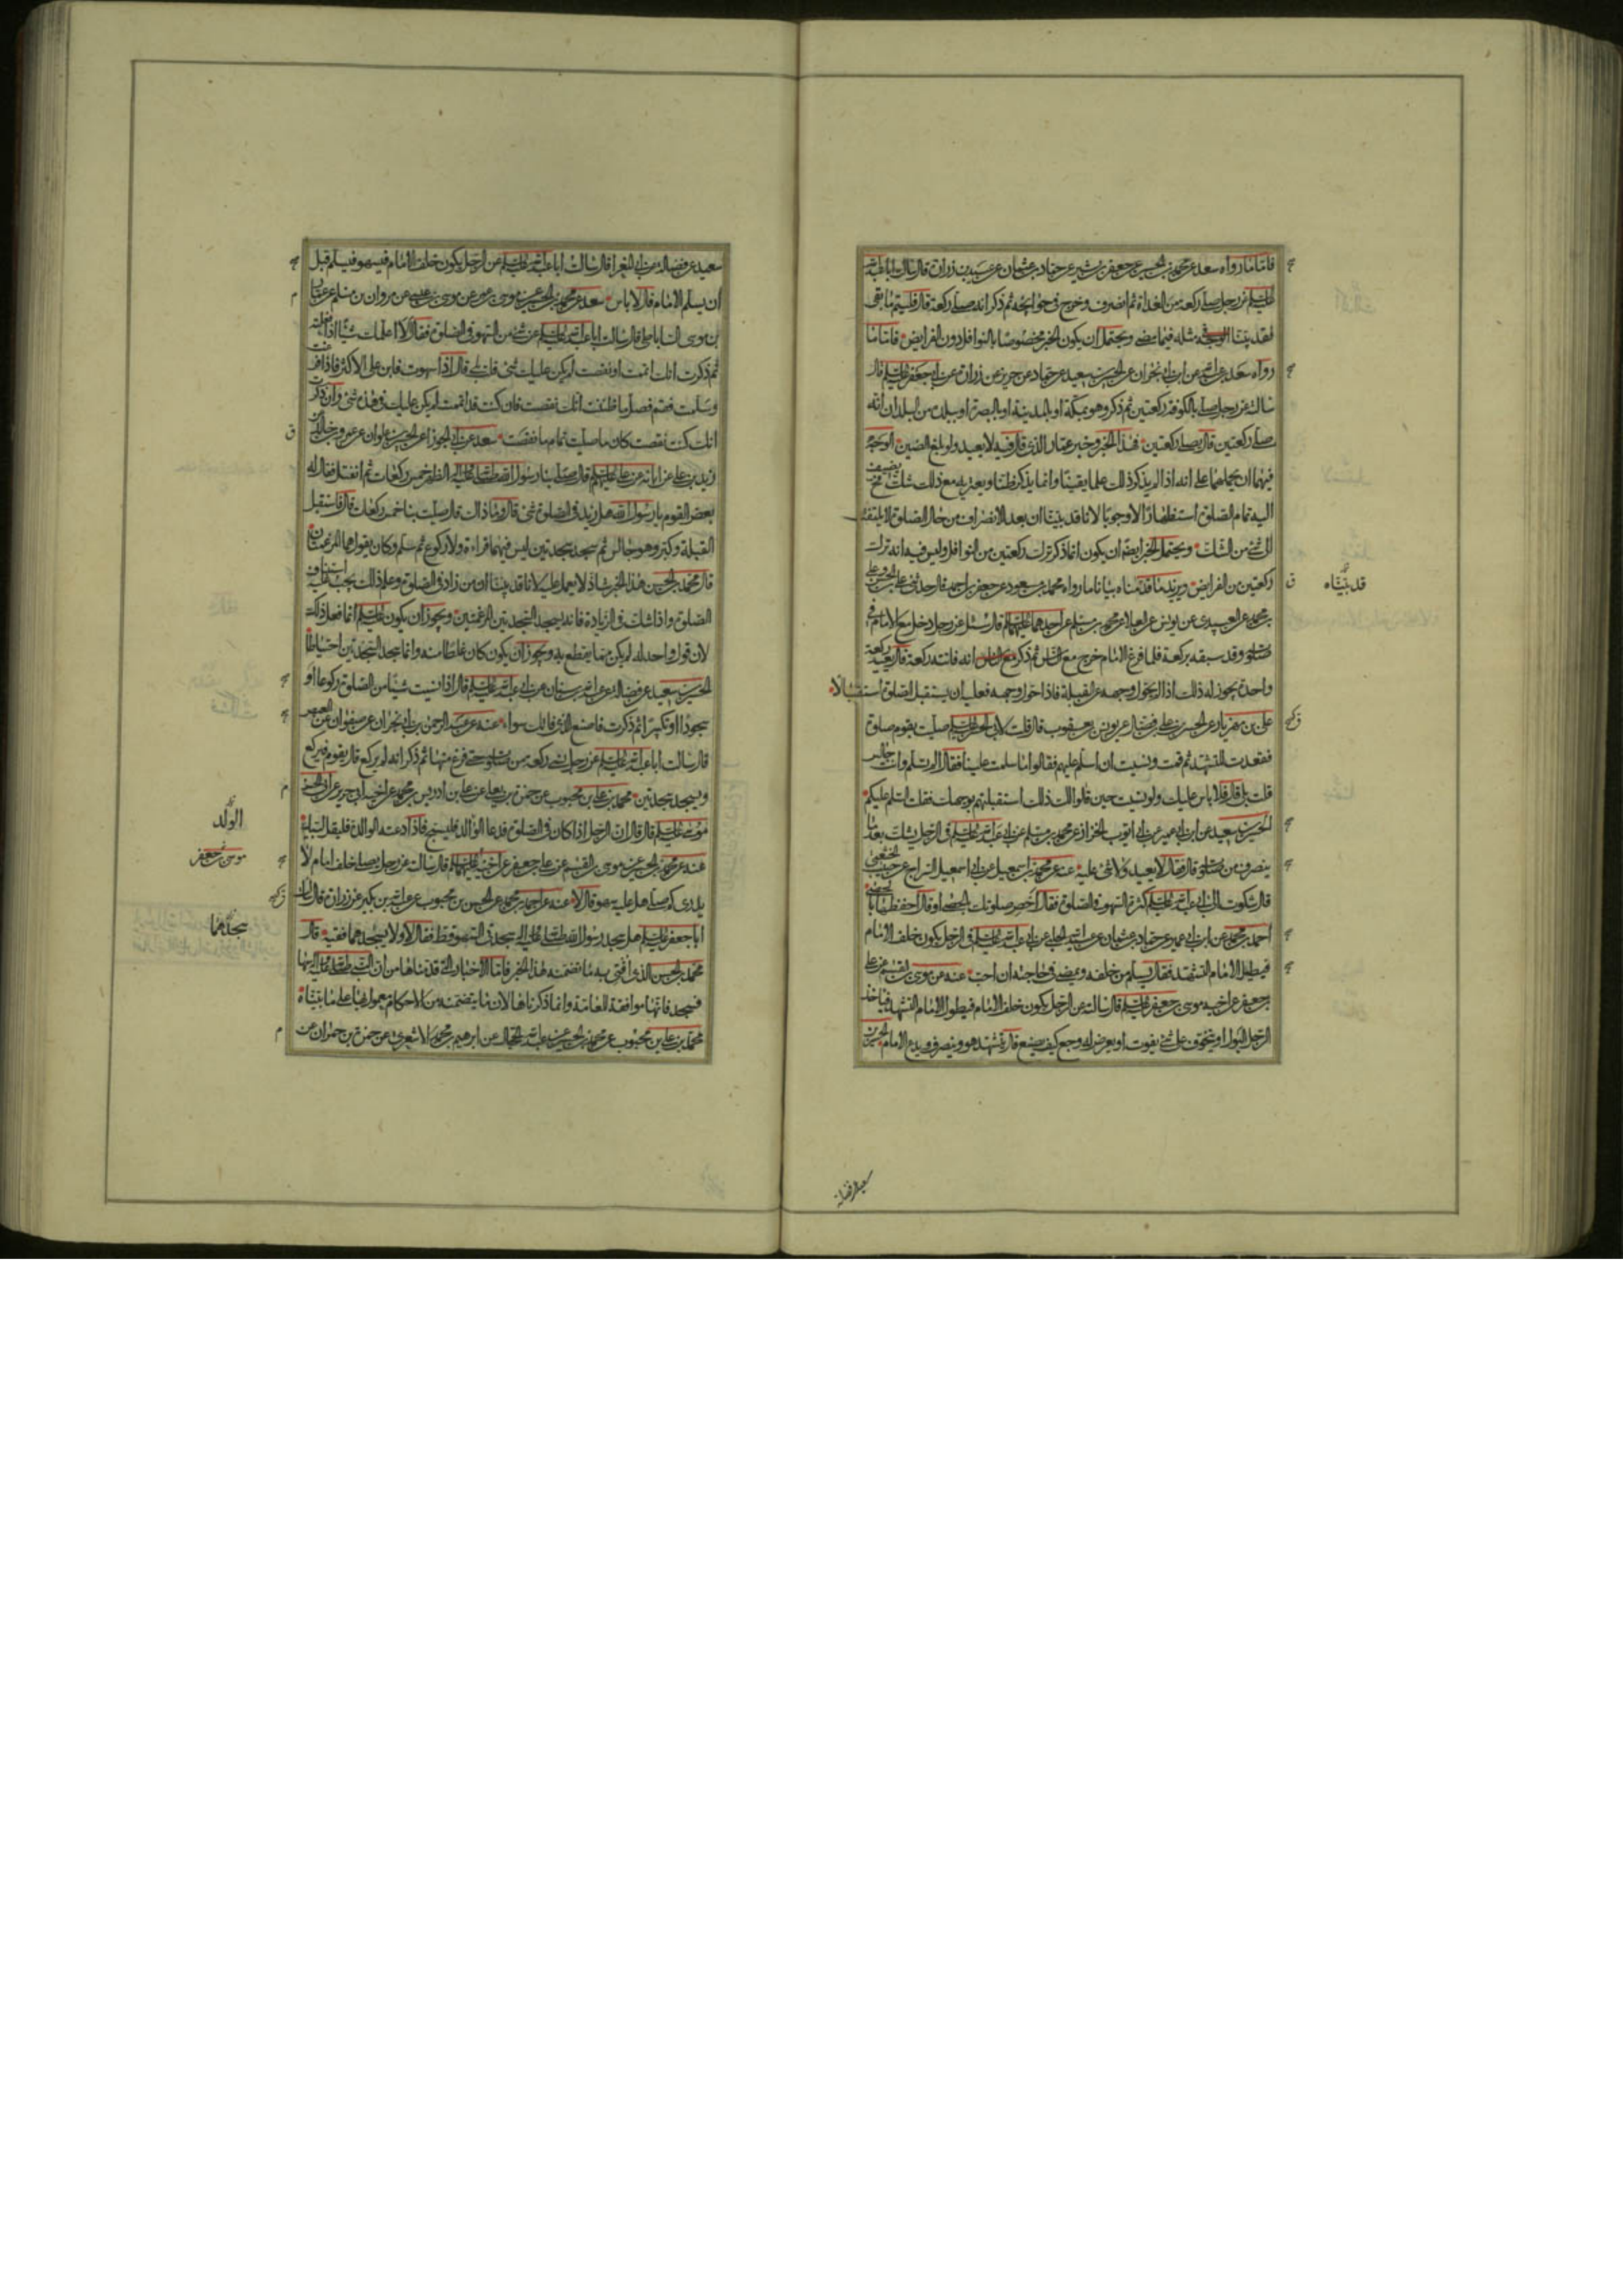 فاما ما رواه سعد عن محمد بن الحسين عن جعفر بن بشير عن حماد بن عثمان عن عبيد بن زرارة قال سالت ابا عبد الله
عليه السلم عن رجل صلى ركعة من الغداة ثم انصرف وخرج في حوائجه ثم ذكر انه صلى ركعة قال فليتم ما بقى
فقد بينا الوجه فى مثله فيما مضى ويحتمل ان يكون الخبر مخصوصا بالنوافل دون الفرايض فاما ما
رواه سعد عن ابن ابى نجران عن الحسين بن سعيد عن حماد عن حريز عن زرارة عن ابى جعفر عليه السلم قال
سالته عن رجل صلى بالكوفة ركعتين ثم ذكر وهو بمكة او بالمدينة او بالبصرة او ببلدة من البلدان انه
صلى ركعتين قال يصلى ركعتين فهذا الخبر وخبر عمار الذى قال فيه لا يعيد ولو بلغ الصين الوجه
فيهما ان نحملهما على انه اذا لم يذكر ذلك علما يقينا وانما يذكر ظنا ويعتريه مع ذلك شك فحينئذ يضيف
اليه تمام الصلوة استظهارا لا وجوبا لانا قد بينا ان بعد الانصراف من حال الصلوة لا يلتفت
الى شئ من الشك ويحتمل الخبر ايضا ان يكون انما ذكر ترك ركعتين من النوافل وليس فيه انه ترك
ركعتين من الفرايض ويزيد ما قدمناه بيانا ما رواه محمد بن مسعود عن جعفر بن احمد قال حدثنى على بن الحسن وعلى
بن محمد عن العبيدى عن يونس عن العلا عن محمد بن مسلم عن احدهما عليهما السلم قال سئل عن رجل دخل مع الامام فى
صلوته وقد سبقه بركعة فلما فرغ الامام خرج مع الناس ثم ذكر انه فاتته ركعة قال يعيد ركعة
واحدة يجوز له ذلك اذا لم يحول وجهه عن القبلة فاذا حول وجهه فعليه ان يستقبل الصلوة استقبالا
على بن مهزيار عن الحسن بن على بن فضال عن يونس بن يعقوب قال قلت لابى الحسن عليه السلم صليت بقوم صلوة
فقعدت للتشهد ثم قمت ونسيت ان اسلم عليهم فقالوا ما سلمت علينا فقال الم تسلم وانت جالس
قلت بلى قال فلا باس عليك ولو نسيت حين قالوا لك ذلك استقبلتهم بوجهك فقلت السلم عليكم
الحسين بن سعيد عن ابن ابى عمير عن ابى ايوب الخزاز عن محمد بن مسلم عن ابى عبد الله عليه السلم فى الرجل يشك بعد ما
ينصرف من صلوته قال فقال لا يعيد ولا شئ عليه عنه عن محمد بن اسمعيل عن ابى اسمعيل السراج عن حبيب الخثعمى
قال شكوت الى ابى عبد الله عليه السلم كثرة السهو فى الصلوة فقال احص صلوتك بالحصى او قال احفظها بالحصى
احمد بن محمد عن ابن ابى عمير عن حماد بن عثمان عن عبيد الله الحلبى عن ابى عبد الله عليه السلم فى الرجل يكون خلف الامام
فيطيل الامام التشهد فقال يسلم من خلفه ويمضى فى حاجته ان احب عنه عن موسى بن القسم عن على
بن جعفر عن اخيه موسى بن جعفر عليه السلم قال سالته عن الرجل يكون خلف الامام فيطول الامام التشهد فياخذ
الرجل البول او يتخوف على شئ يفوت او يعرض له وجع كيف يصنع قال يتشهد هو وينصرف ويدع الامام الحسين بن
قد بيناه
سعيد عن فضالة
سعيد عن فضالة عن ابى المغرا قال سالت ابا عبد الله عليه السلم عن الرجل يكون خلف الامام فيسهو فيسلم قبل
ان يسلم الامام قال لا باس سعد عن محمد بن الحسين عن موسى بن عمر عن موسى بن عيسى عن مروان بن مسلم عن عمار
بن موسى الساباطى قال سالت ابا عبد الله عليه السلم عن شئ من السهو فى الصلوة فقال الا اعلمك شيئا اذا فعلته
ثم ذكرت انك اتممت او نقصت لم يكن عليك شئ قلت بلى قال اذا سهوت فابن على الاكثر فاذا فرغت
وسلمت فقم فصل ما ظننت انك نقصت فان كنت قد اتممت لم يكن عليك فى هذه شئ وان ذكرت
انك كنت نقصت كان ما صليت تمام ما نقصت سعد عن ابى الجوزا عن الحسين بن علوان عن عمرو بن خالد عن
زيد بن على عن ابائه عن على عليه السلم قال صلى بنا رسول الله صلى الله عليه واله الظهر خمس ركعات ثم انفتل فقال له
بعض القوم يا رسول الله هل زيد فى الصلوة شئ قال وما ذاك قال صليت بنا خمس ركعات قال فاستقبل
القبلة وكبر وهو جالس ثم سجد سجدتين ليس فيهما قراءة ولا ركوع ثم سلم وكان يقول هما المرغمتان
قال محمد بن الحسن هذا الخبر شاذ لا يعمل عليه لانا قد بينا ان من زاد فى الصلوة وعلم ذلك يجب عليه استيناف
الصلوة واذا شك فى الزيادة فانه يسجد السجدتين المرغمتين ويجوز ان يكون عليه السلم انما فعل ذلك
لان قول واحد له لم يكن مما يقطع به ويجوز ان يكون كان غلطا منه وانما سجد السجدتين احتياطا
الحسين بن سعيد عن فضالة عن عبد الله بن سنان عن ابى عبد الله عليه السلم قال اذا نسيت شيئا من الصلوة ركوعا او
سجودا او تكبيرا ثم ذكرت فاصنع الذى فاتك سواء عنه عن عبد الرحمن بن ابى نجران عن صفوان عن العيص
قال سالت ابا عبد الله عليه السلم عن رجل نسى ركعة من صلوته حتى فرغ منها ثم ذكر انه لم يركع قال يقوم فيركع
ويسجد سجدتين محمد بن على بن محبوب عن حمزة بن يعلى عن على بن ادريس بن محمد عن اخيه ابى جرير عن ابى الحسن
موسى عليه السلم قال قال ان الرجل اذا كان فى الصلوة فدعاه الوالد فليسبح فاذا دعته الوالدة فليقل لبيك
عنه عن محمد بن الحسين عن موسى بن القسم عن على بن جعفر عن اخيه عليهما السلم قال سالته عن رجل يصلى خلف امام لا
يدرى كم صلى هل عليه سهو قال لا عنه عن احمد بن محمد عن الحسن بن محبوب عن عبد الله بن بكير عن زرارة قال سالت
ابا جعفر عليه السلم هل سجد رسول الله صلى الله عليه واله سجدتى السهو قط فقال لا ولا يسجدهما فقيه قال
محمد بن الحسن الذى افتى به ما تضمنه هذا الخبر فاما الاخبار التى قدمناها من ان النبى صلى الله عليه واله سها
فسجد فانها موافقة للعامة وانما ذكرناها لان ما يتضمنه من الاحكام معمول بها على ما بيناه
محمد بن على بن محبوب عن محمد بن الحسين عن عبد الله الحجال عن ابرهيم بن محمد الاشعرى عن حمزة بن حمران عن
الولد
موسى بن جعفر
سجدهما